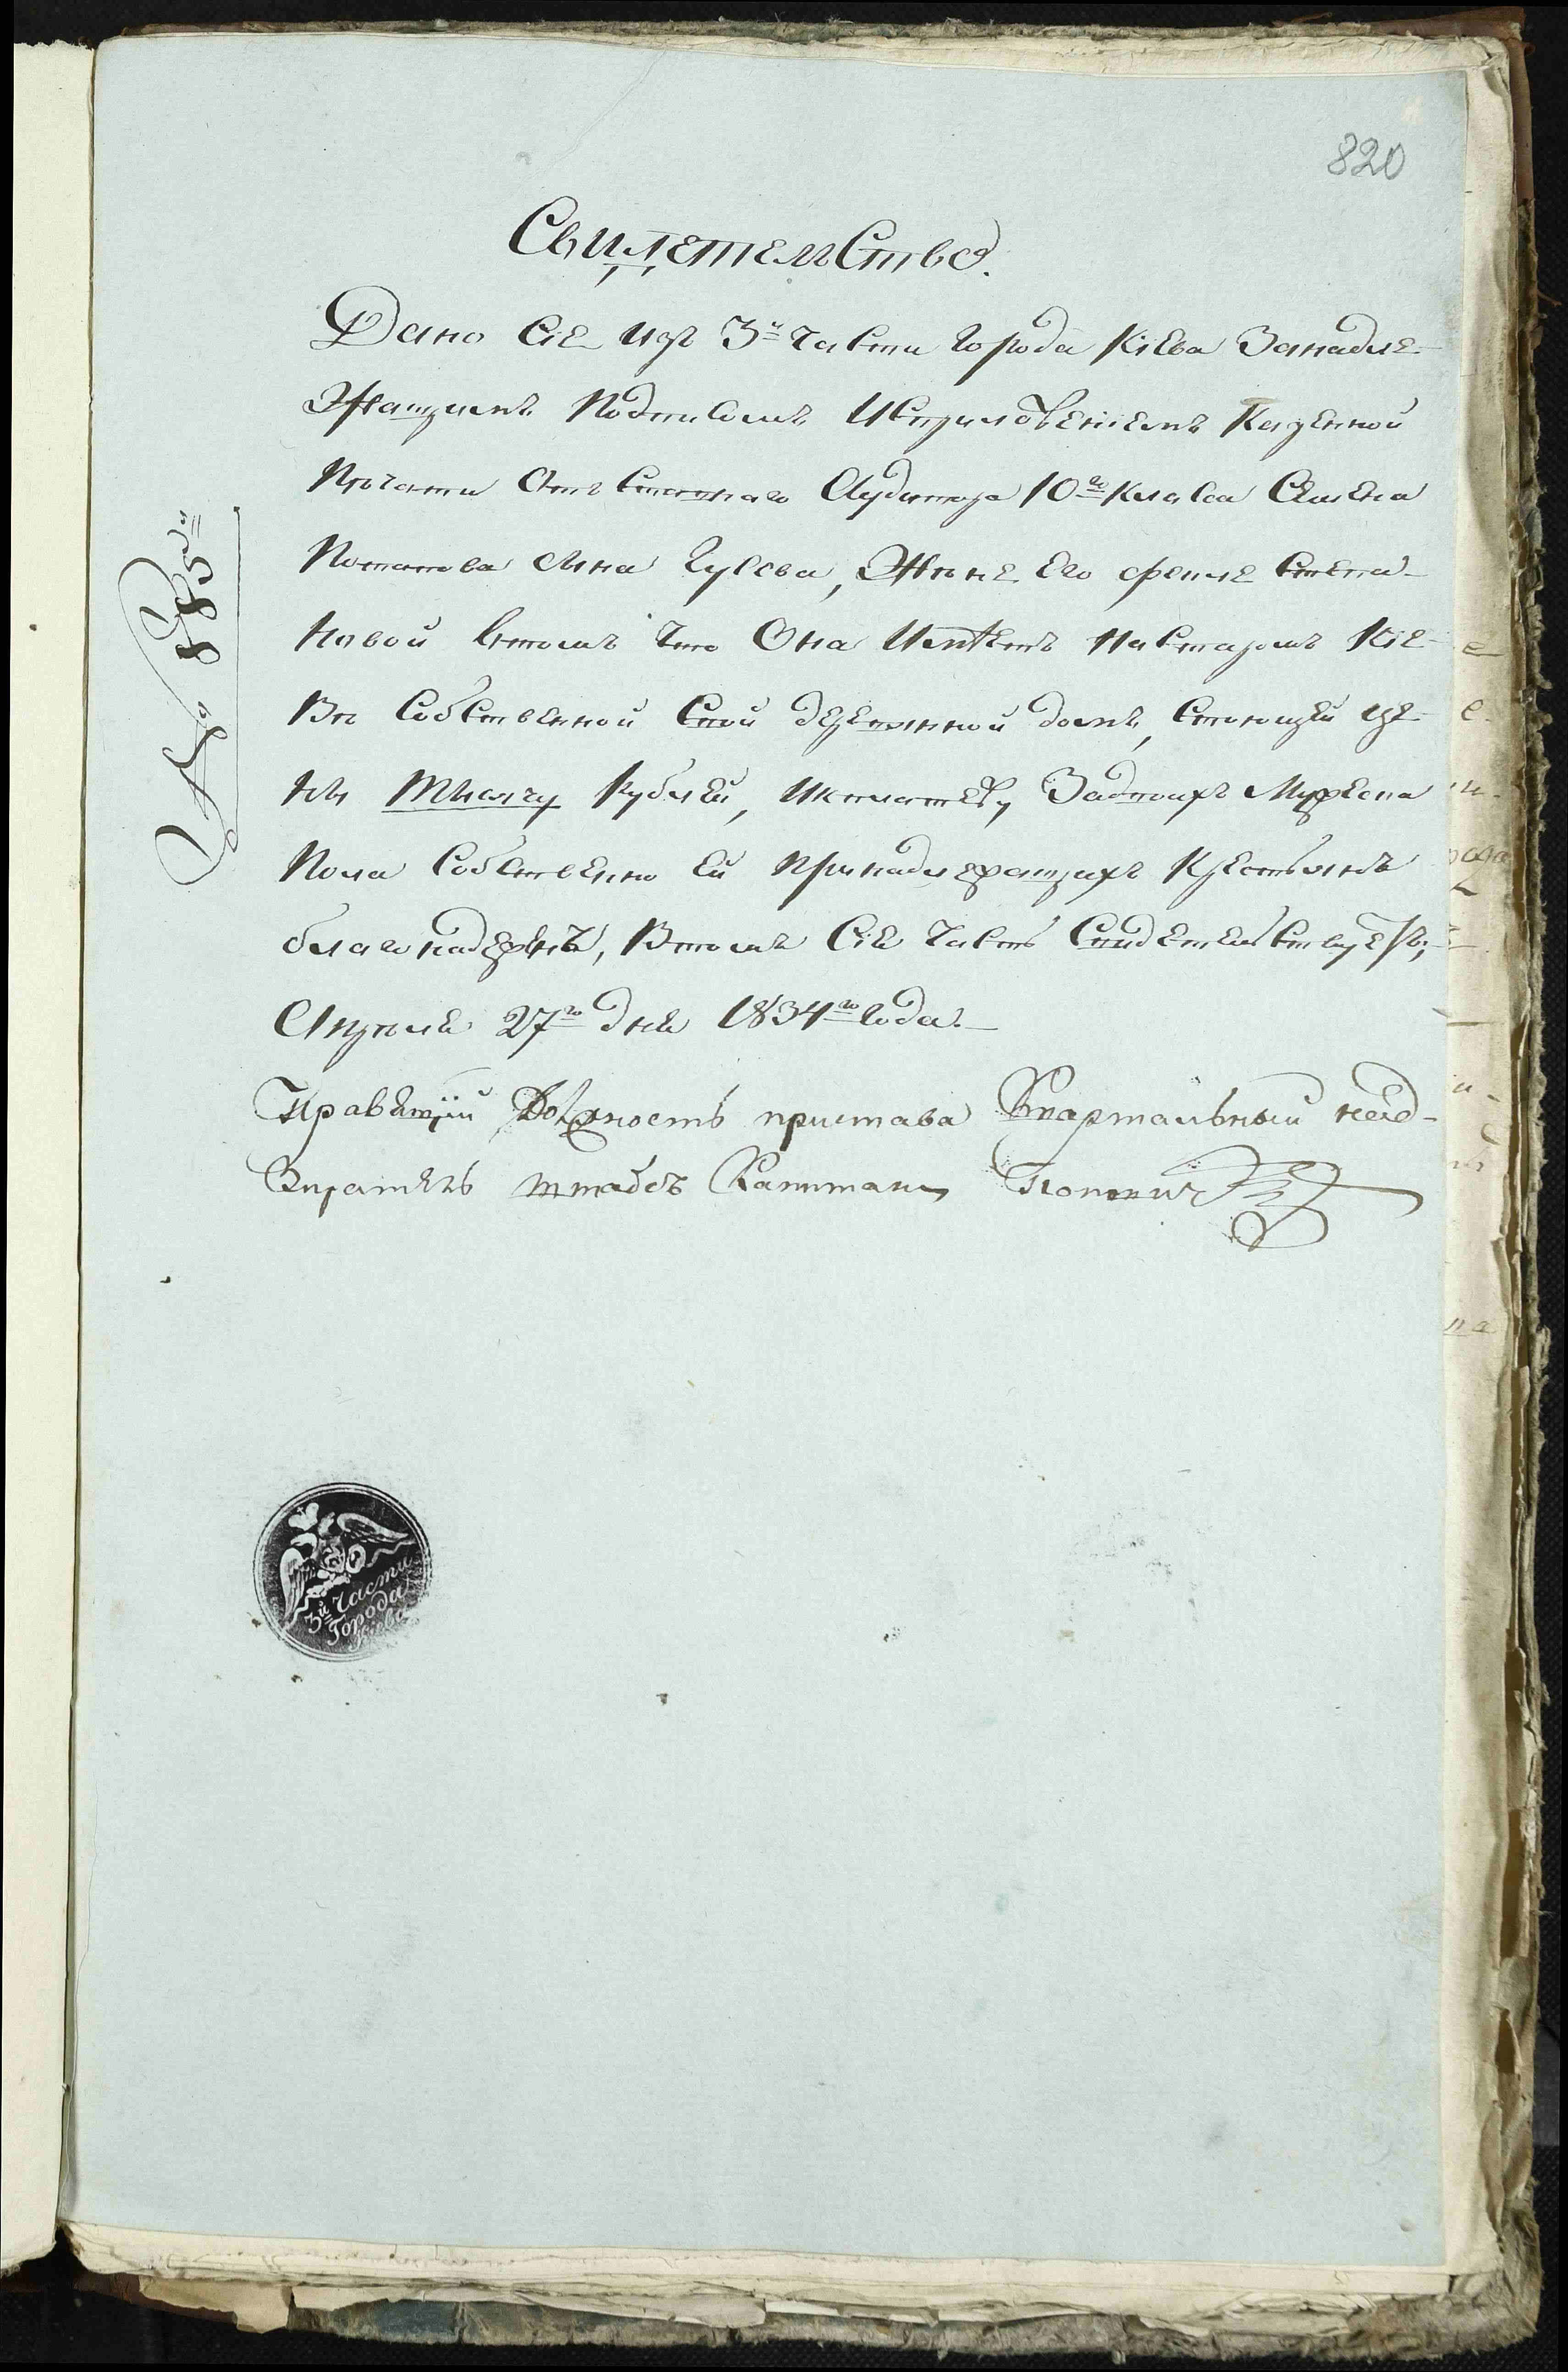 820
Свидетельство.
Дано сіе изъ 3й части города Кіева занадле-
жащимъ подписомъ иприложеніемъ казенной
печати отъ ставнаго аудитора 10го класса Семена
Потапова сына Гусева, жене его Фекле Степа-
новой втомъ что она имѣетъ настаромъ Кіе-
ве собственной свой деревянной домъ, стоющей це-
ны тысячу рублей, икплатежу задвоихъ мужеска
пола собственно ей принадлежащихъ крестьянъ
благонадежнъ, втомъ сія часть свидетельствуетъ;
Апреля 27го дня 1834го года.
Правящій должность пристава квартальный над-
зиратель штабсъ капитанъ Попович
№ 885й
3й части
Города
Кіева